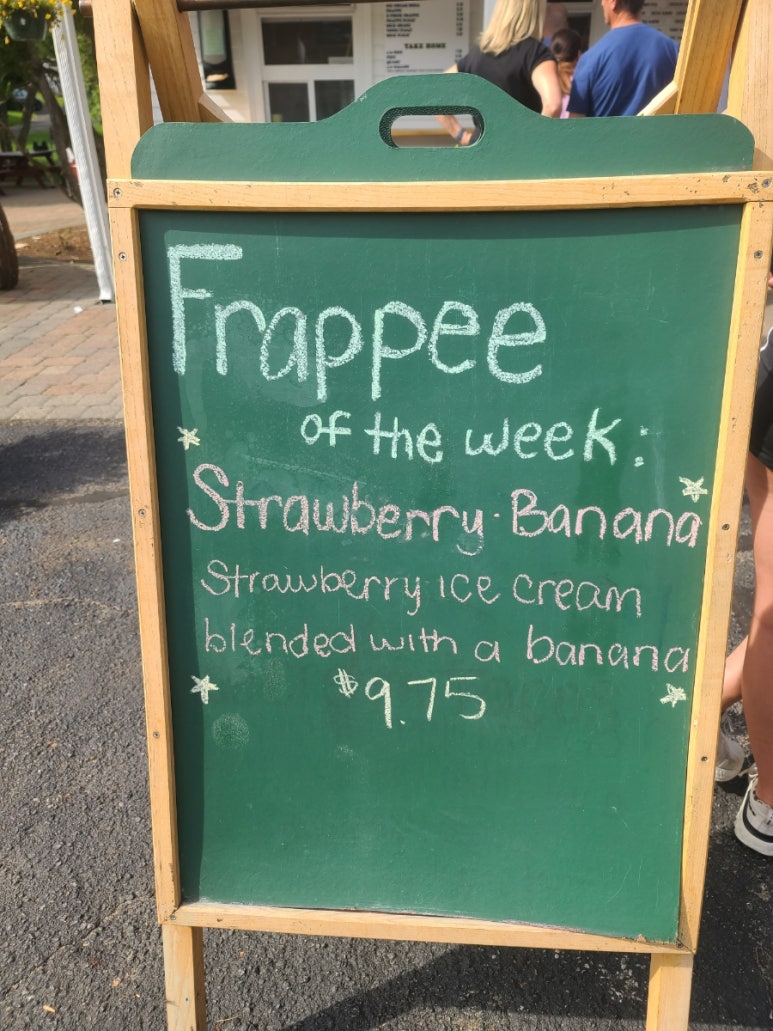 TAKE HOME
Frappee
of the week:
Strawberry-Banana
Strawberry ice cream
blended with a banana
$9.75